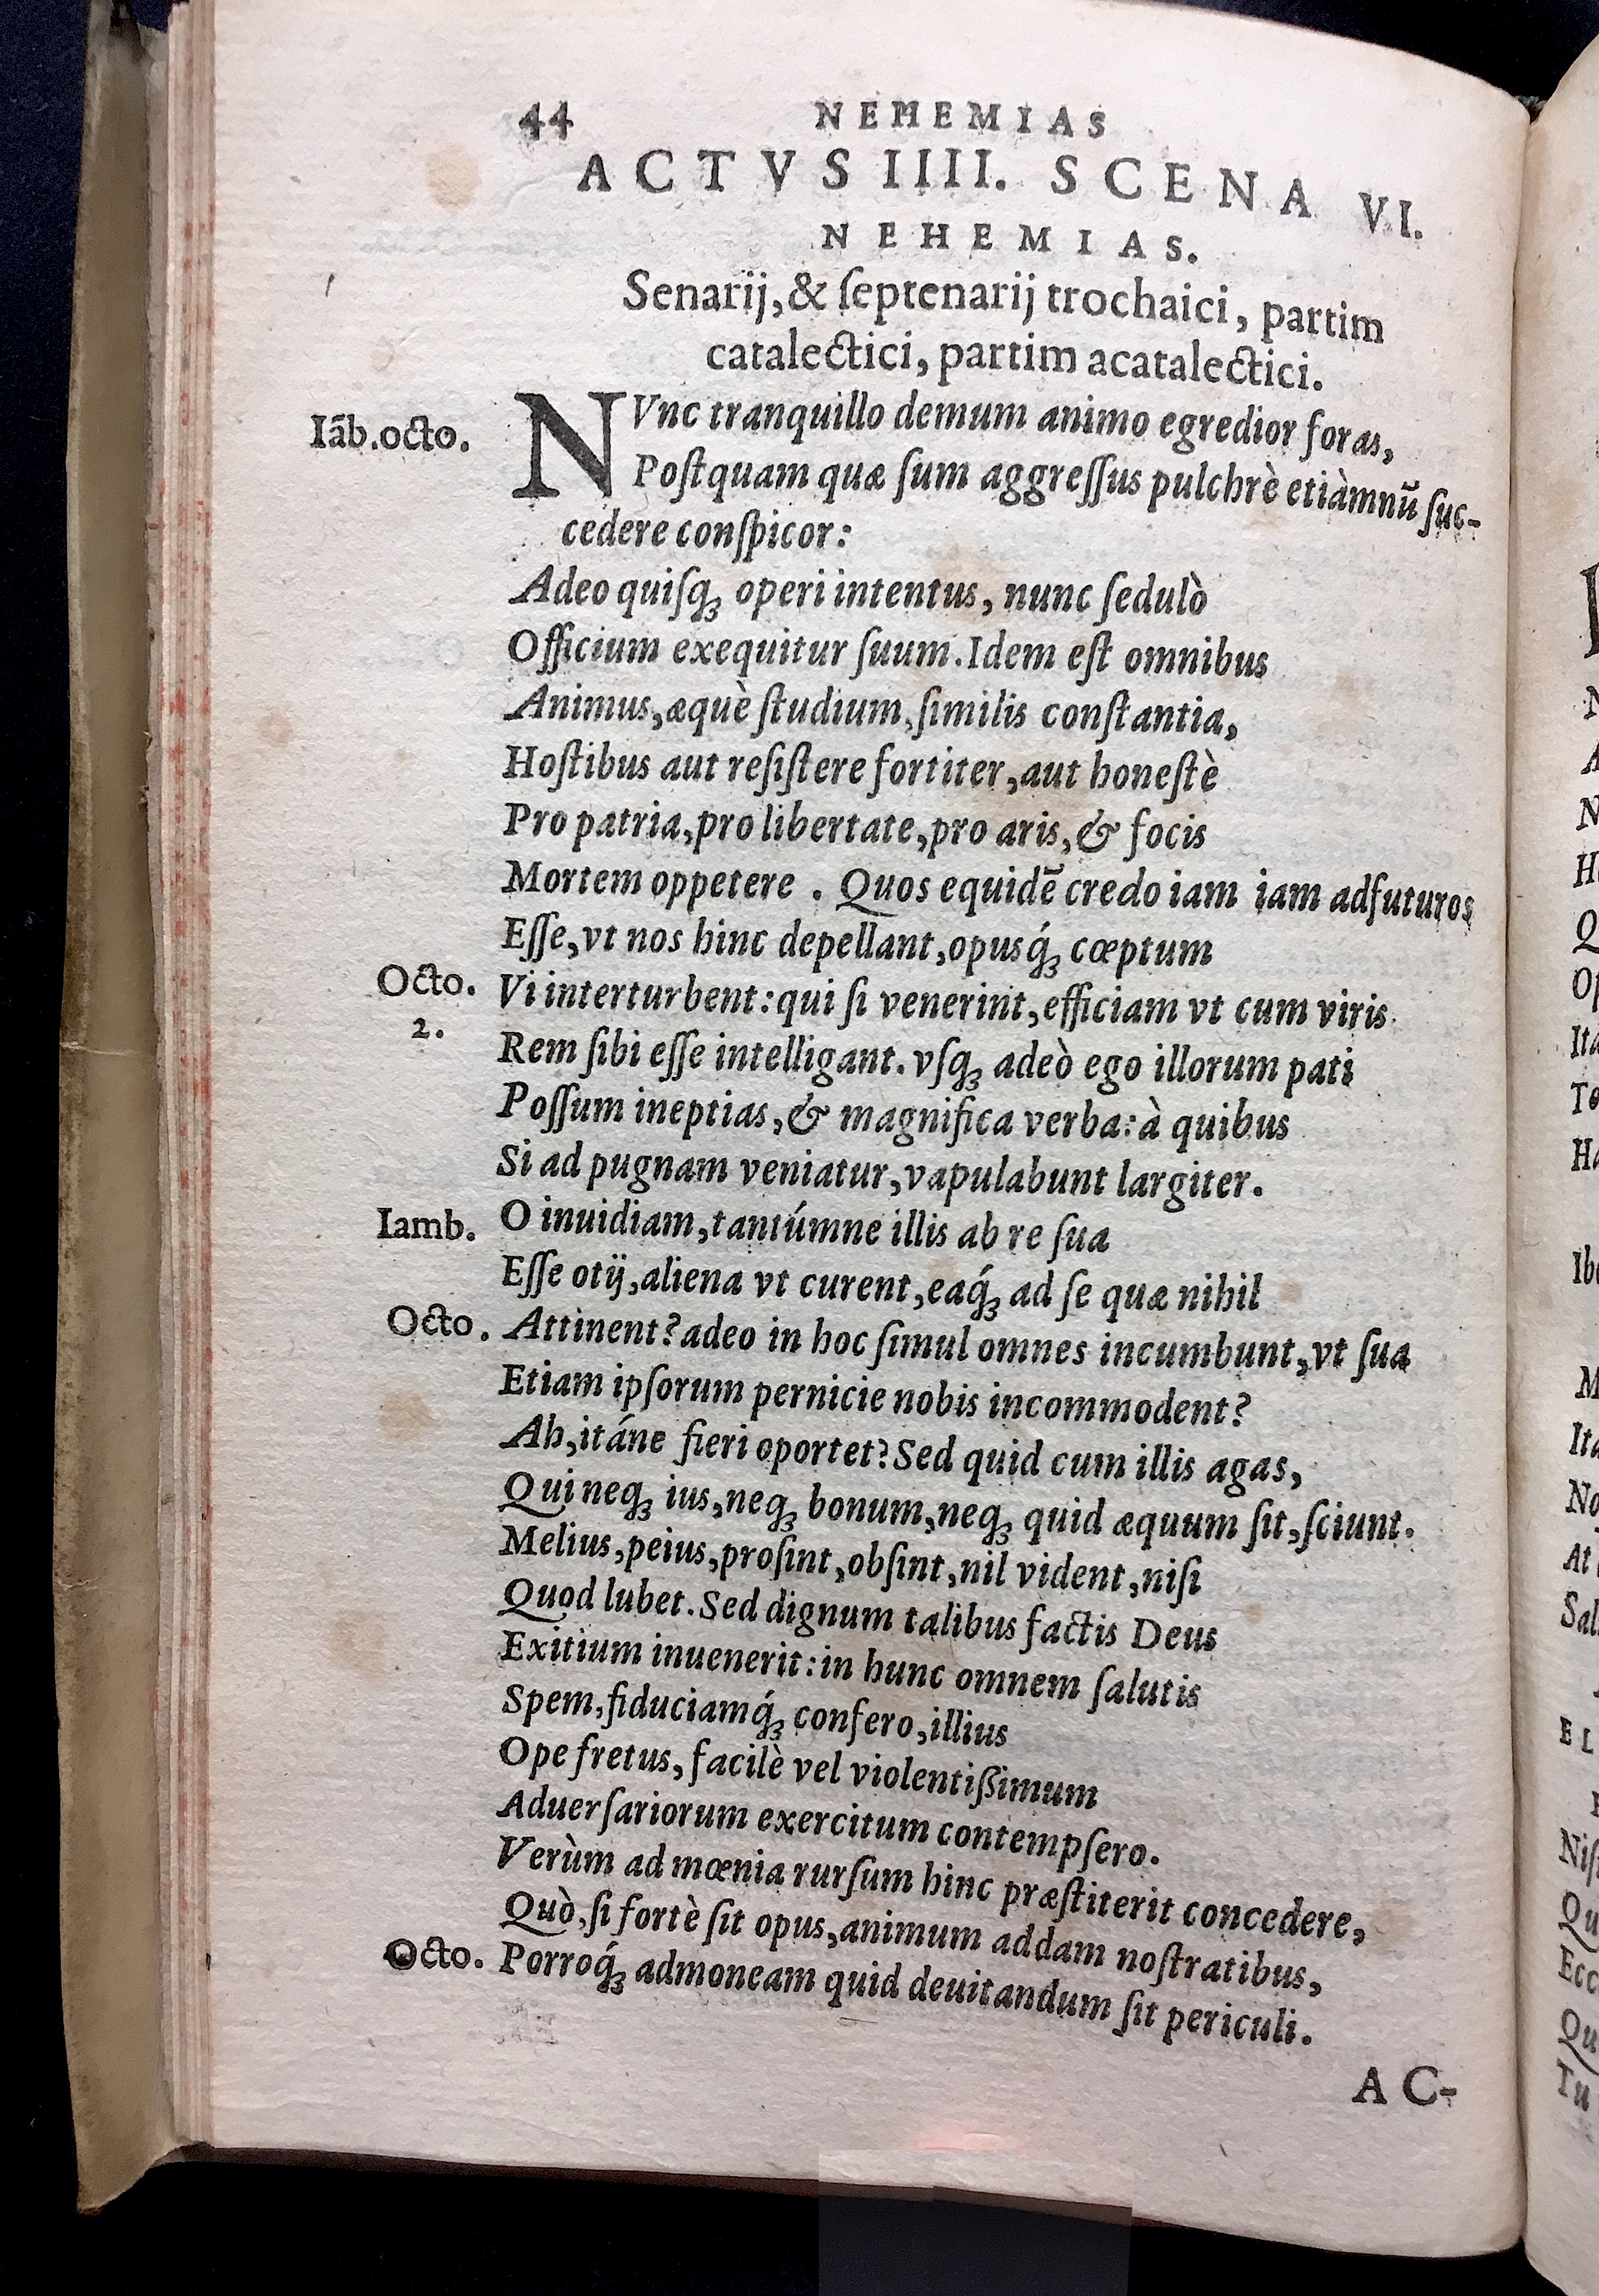 44 NEHEMIAS
ACTVS IIII. SCENA VI.
NEHEMIAS.
Senarij, & ſeptenarij trochaici, partim
catalectici, partim acatalectici.
Iãb.octo. NVnc tranquillo demum animo egredior foras,
Poſtquam quæ ſum aggreſſus pulchrè etiàmnũ ſuc-
cedere conſpicor:
Adeo quiſq; operi intentus, nunc ſedulò
Officium exequitur ſuum. Idem eſt omnibus
Animus, æquè ſtudium, ſimilis conſtantia,
Hoſtibus aut reſiſtere fortiter, aut honeſtè
Pro patria, pro libertate, pro aris, & focis
Mortem oppetere . Quos equidẽ credo iam iam adfuturos
Eſſe, vt nos hinc depellant, opusq́; cœptum
Octo. Vi interturbent: qui ſi venerint, efficiam vt cum viris
2. Rem ſibi eſſe intelligant. vſq; adeò ego illorum pati
Poſſum ineptias, & magnifica verba: à quibus
Si ad pugnam veniatur, vapulabunt largiter.
Iamb. O inuidiam, tantúmne illis ab re ſua
Eſſe otij, aliena vt curent, eaq́; ad ſe quæ nihil
Octo. Attinent? adeo in hoc ſimul omnes incumbunt, vt ſua
Etiam ipſorum pernicie nobis incommodent?
Ah, itáne fieri oportet? Sed quid cum illis agas,
Qui neq; ius, neq; bonum, neq; quid æquum ſit, ſciunt.
Melius, peius, proſint, obſint, nil vident, niſi
Quod lubet. Sed dignum talibus factis Deus
Exitium inuenerit: in hunc omnem ſalutis
Spem, fiduciamq́; confero, illius
Ope fretus, facilè vel violentißimum
Aduerſariorum exercitum contempſero.
Verùm ad mœnia rurſum hinc præſtiterit concedere,
Quò, ſi fortè ſit opus, animum addam noſtratibus,
Octo. Porroq́; admoneam quid deuitandum ſit periculi.
AC-